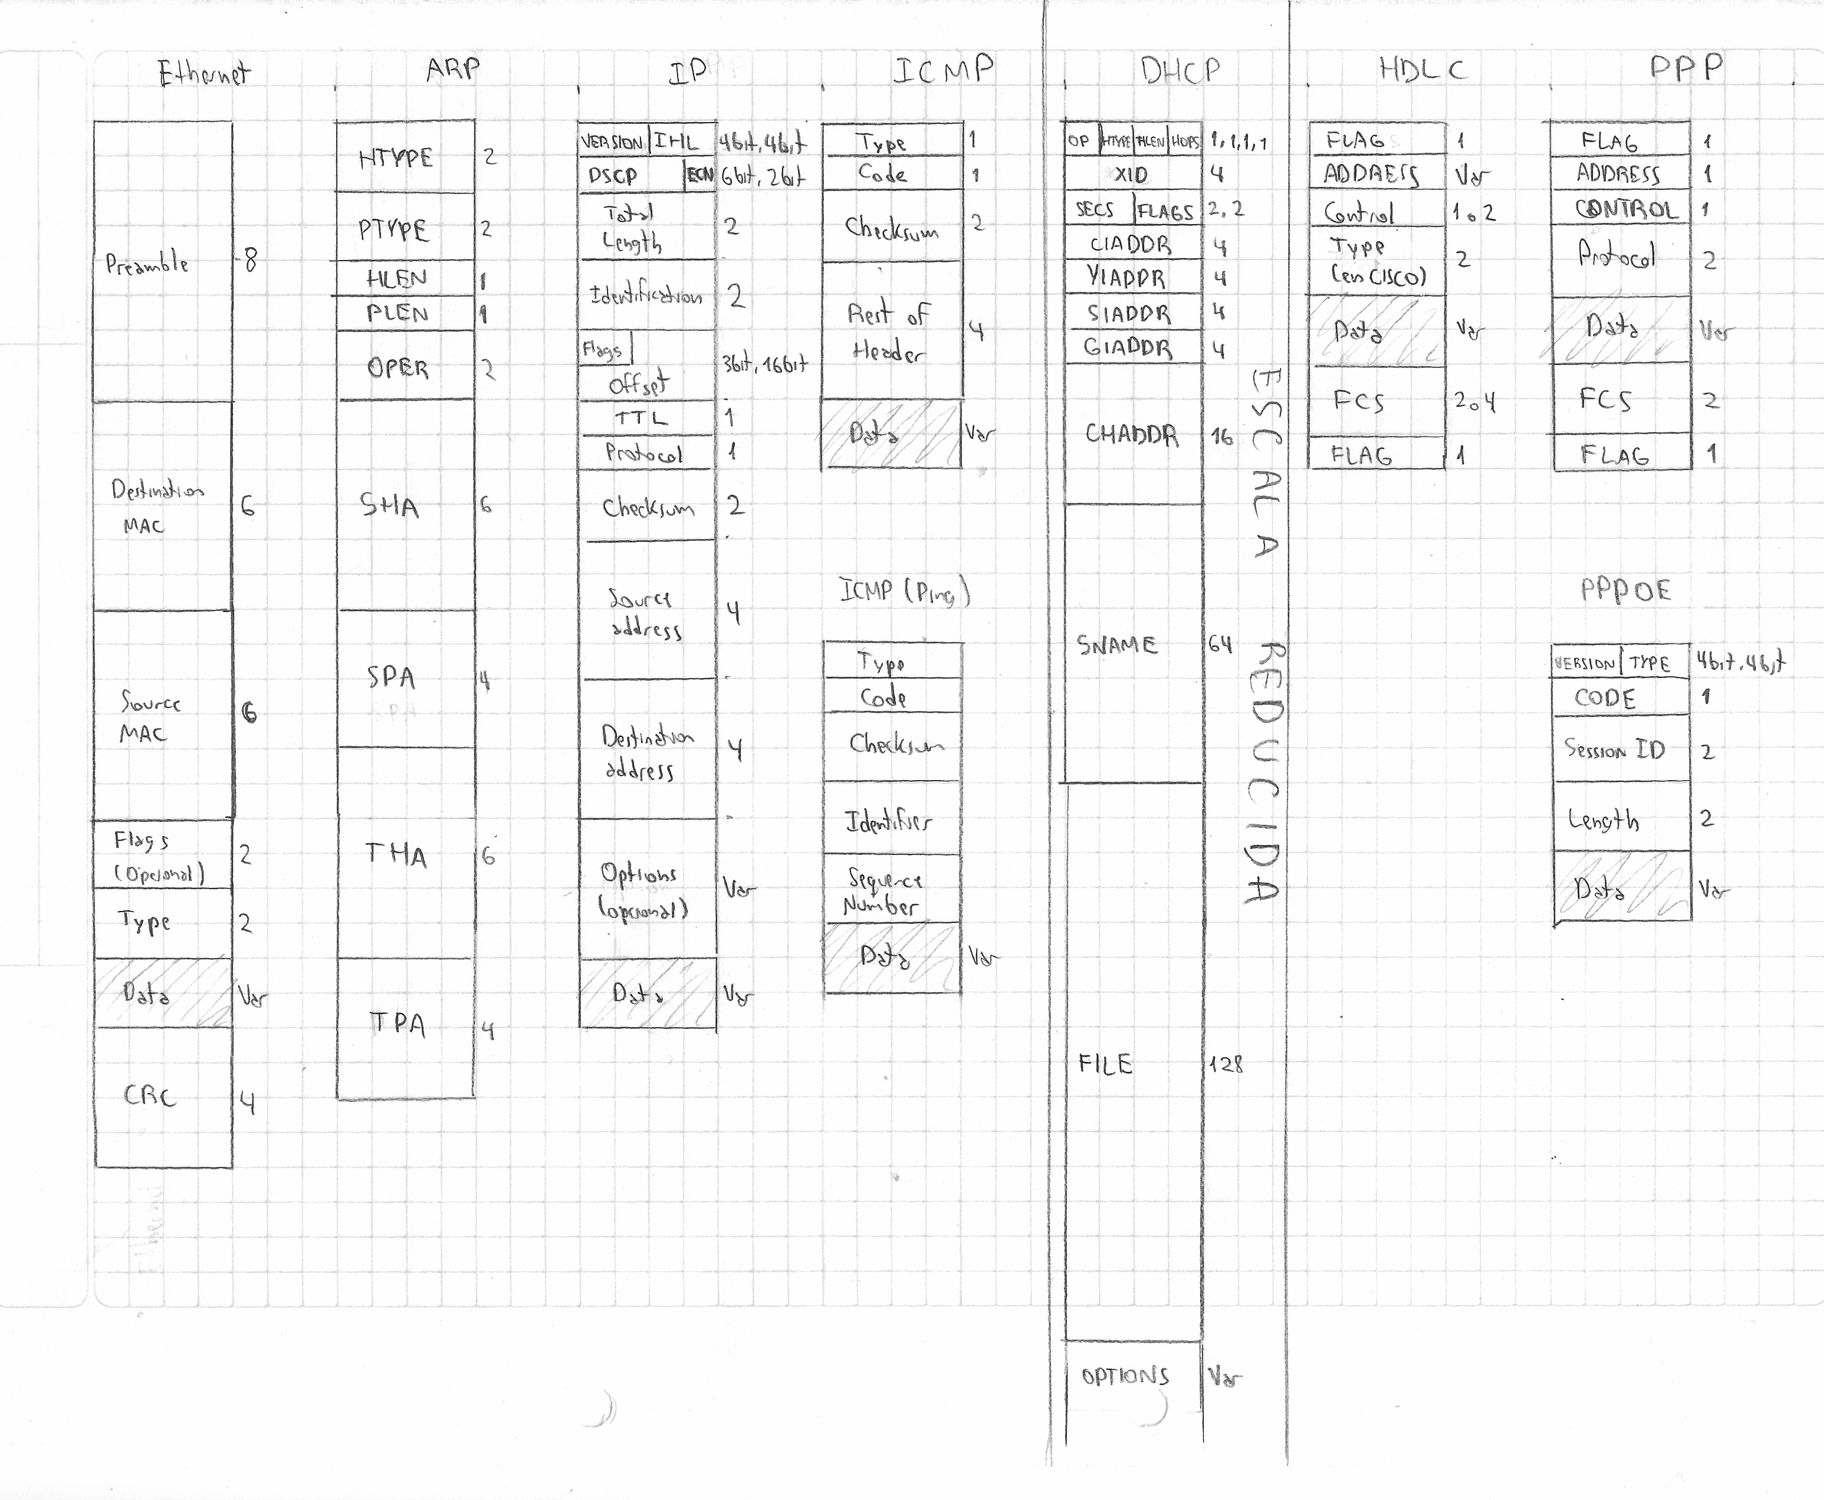 Ethernet
Preamble 8
Destination
MAC 6
Source
MAC 6
Flags
(Opcional) 2
Type 2
Data Var
CRC 4
ARP
HTYPE 2
PTYPE 2
HLEN 1
PLEN 1
OPER 2
SHA 6
SPA 4
THA 6
TPA 4
IP
VERSION IHL 4bit, 4bit
DSCP ECN 6bit, 2bit
Total
Length 2
Identification 2
Flags
Offset 3bit, 16bit
TTL 1
Protocol 1
Checksum 2
Source
address 4
Destination
address 4
Options
(opcional) Var
Data Var
ICMP
Type 1
Code 1
Checksum 2
Rest of
Header 4
Data Var
ICMP (Ping)
Type
Code
Checksum
Identifier
Sequence
Number
Data Var
DHCP
OP HTYPE HLEN HOPS 1, 1, 1, 1
XID 4
SECS FLAGS 2, 2
CIADDR 4
YIADDR 4
SIADDR 4
GIADDR 4
CHADDR 16
SNAME 64
FILE 128
OPTIONS Var
ESCALA REDUCIDA
HDLC
FLAG 1
ADDRESS Var
Control 1 o 2
Type
(en CISCO) 2
Data Var
FCS 2 o 4
FLAG 1
PPP
FLAG 1
ADDRESS 1
CONTROL 1
Protocol 2
Data Var
FCS 2
FLAG 1
PPPOE
VERSION TYPE 4bit, 4bit
CODE 1
SESSION ID 2
Length 2
Data Var